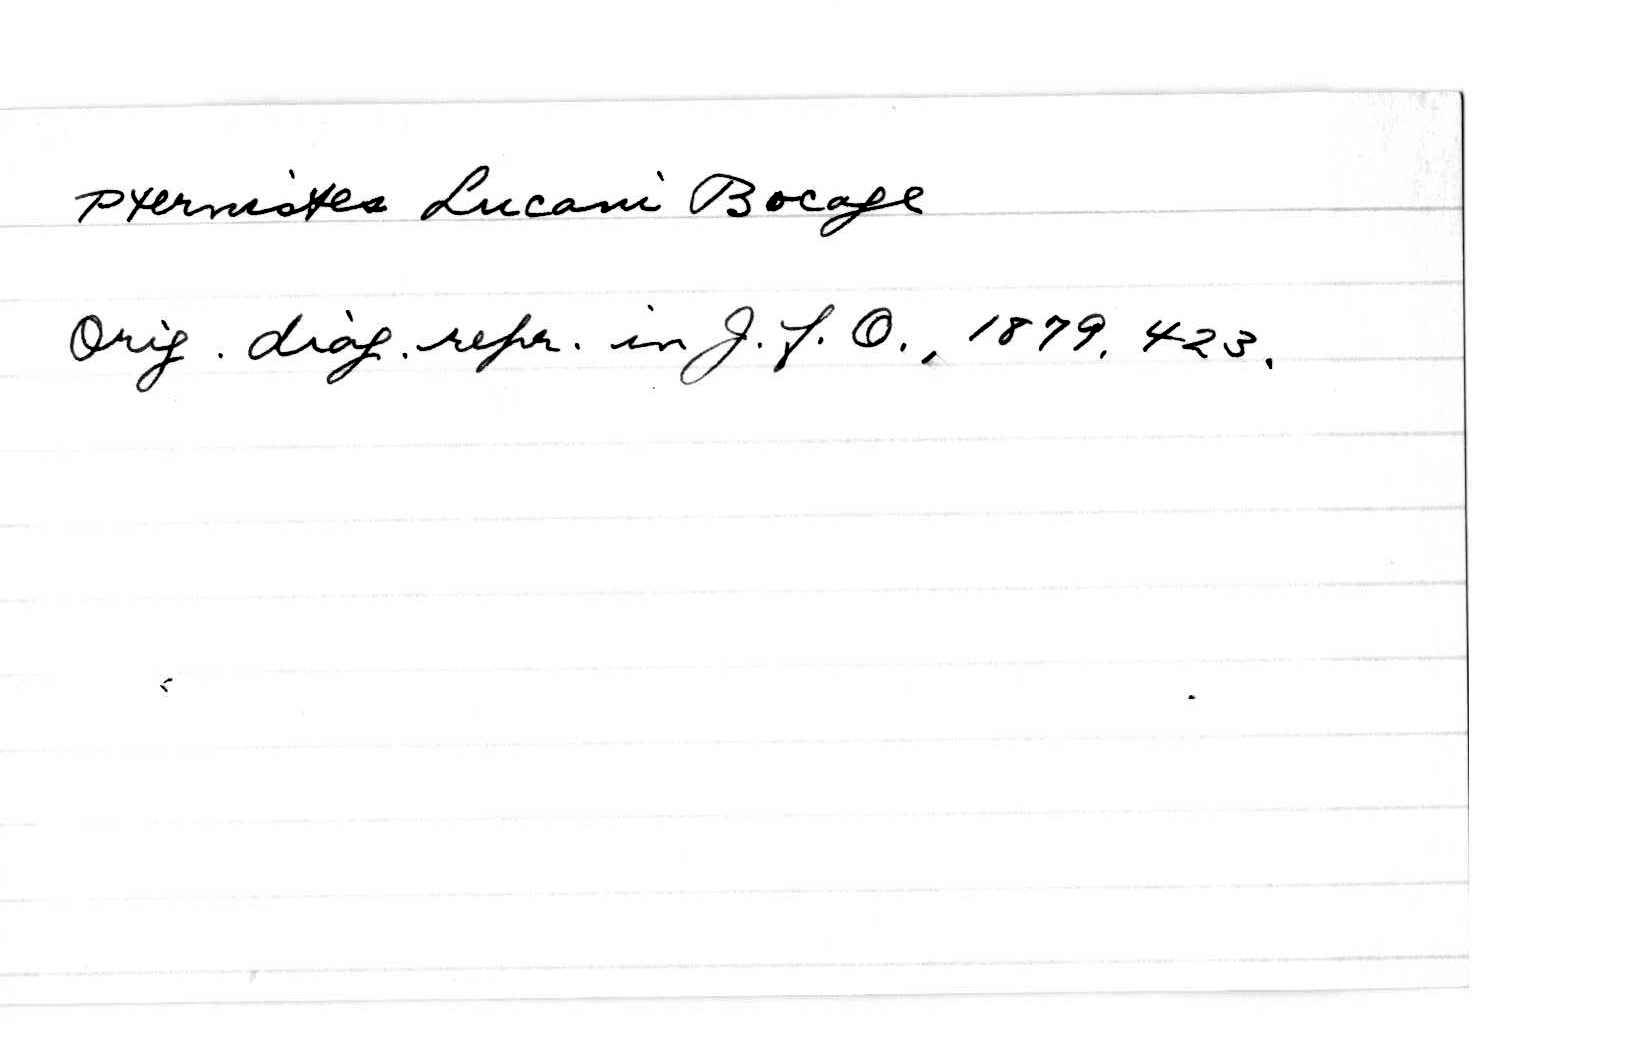 Pternistes Lucani Bocage
Orig. diag. repr. in J. f. O., 1879, 423.